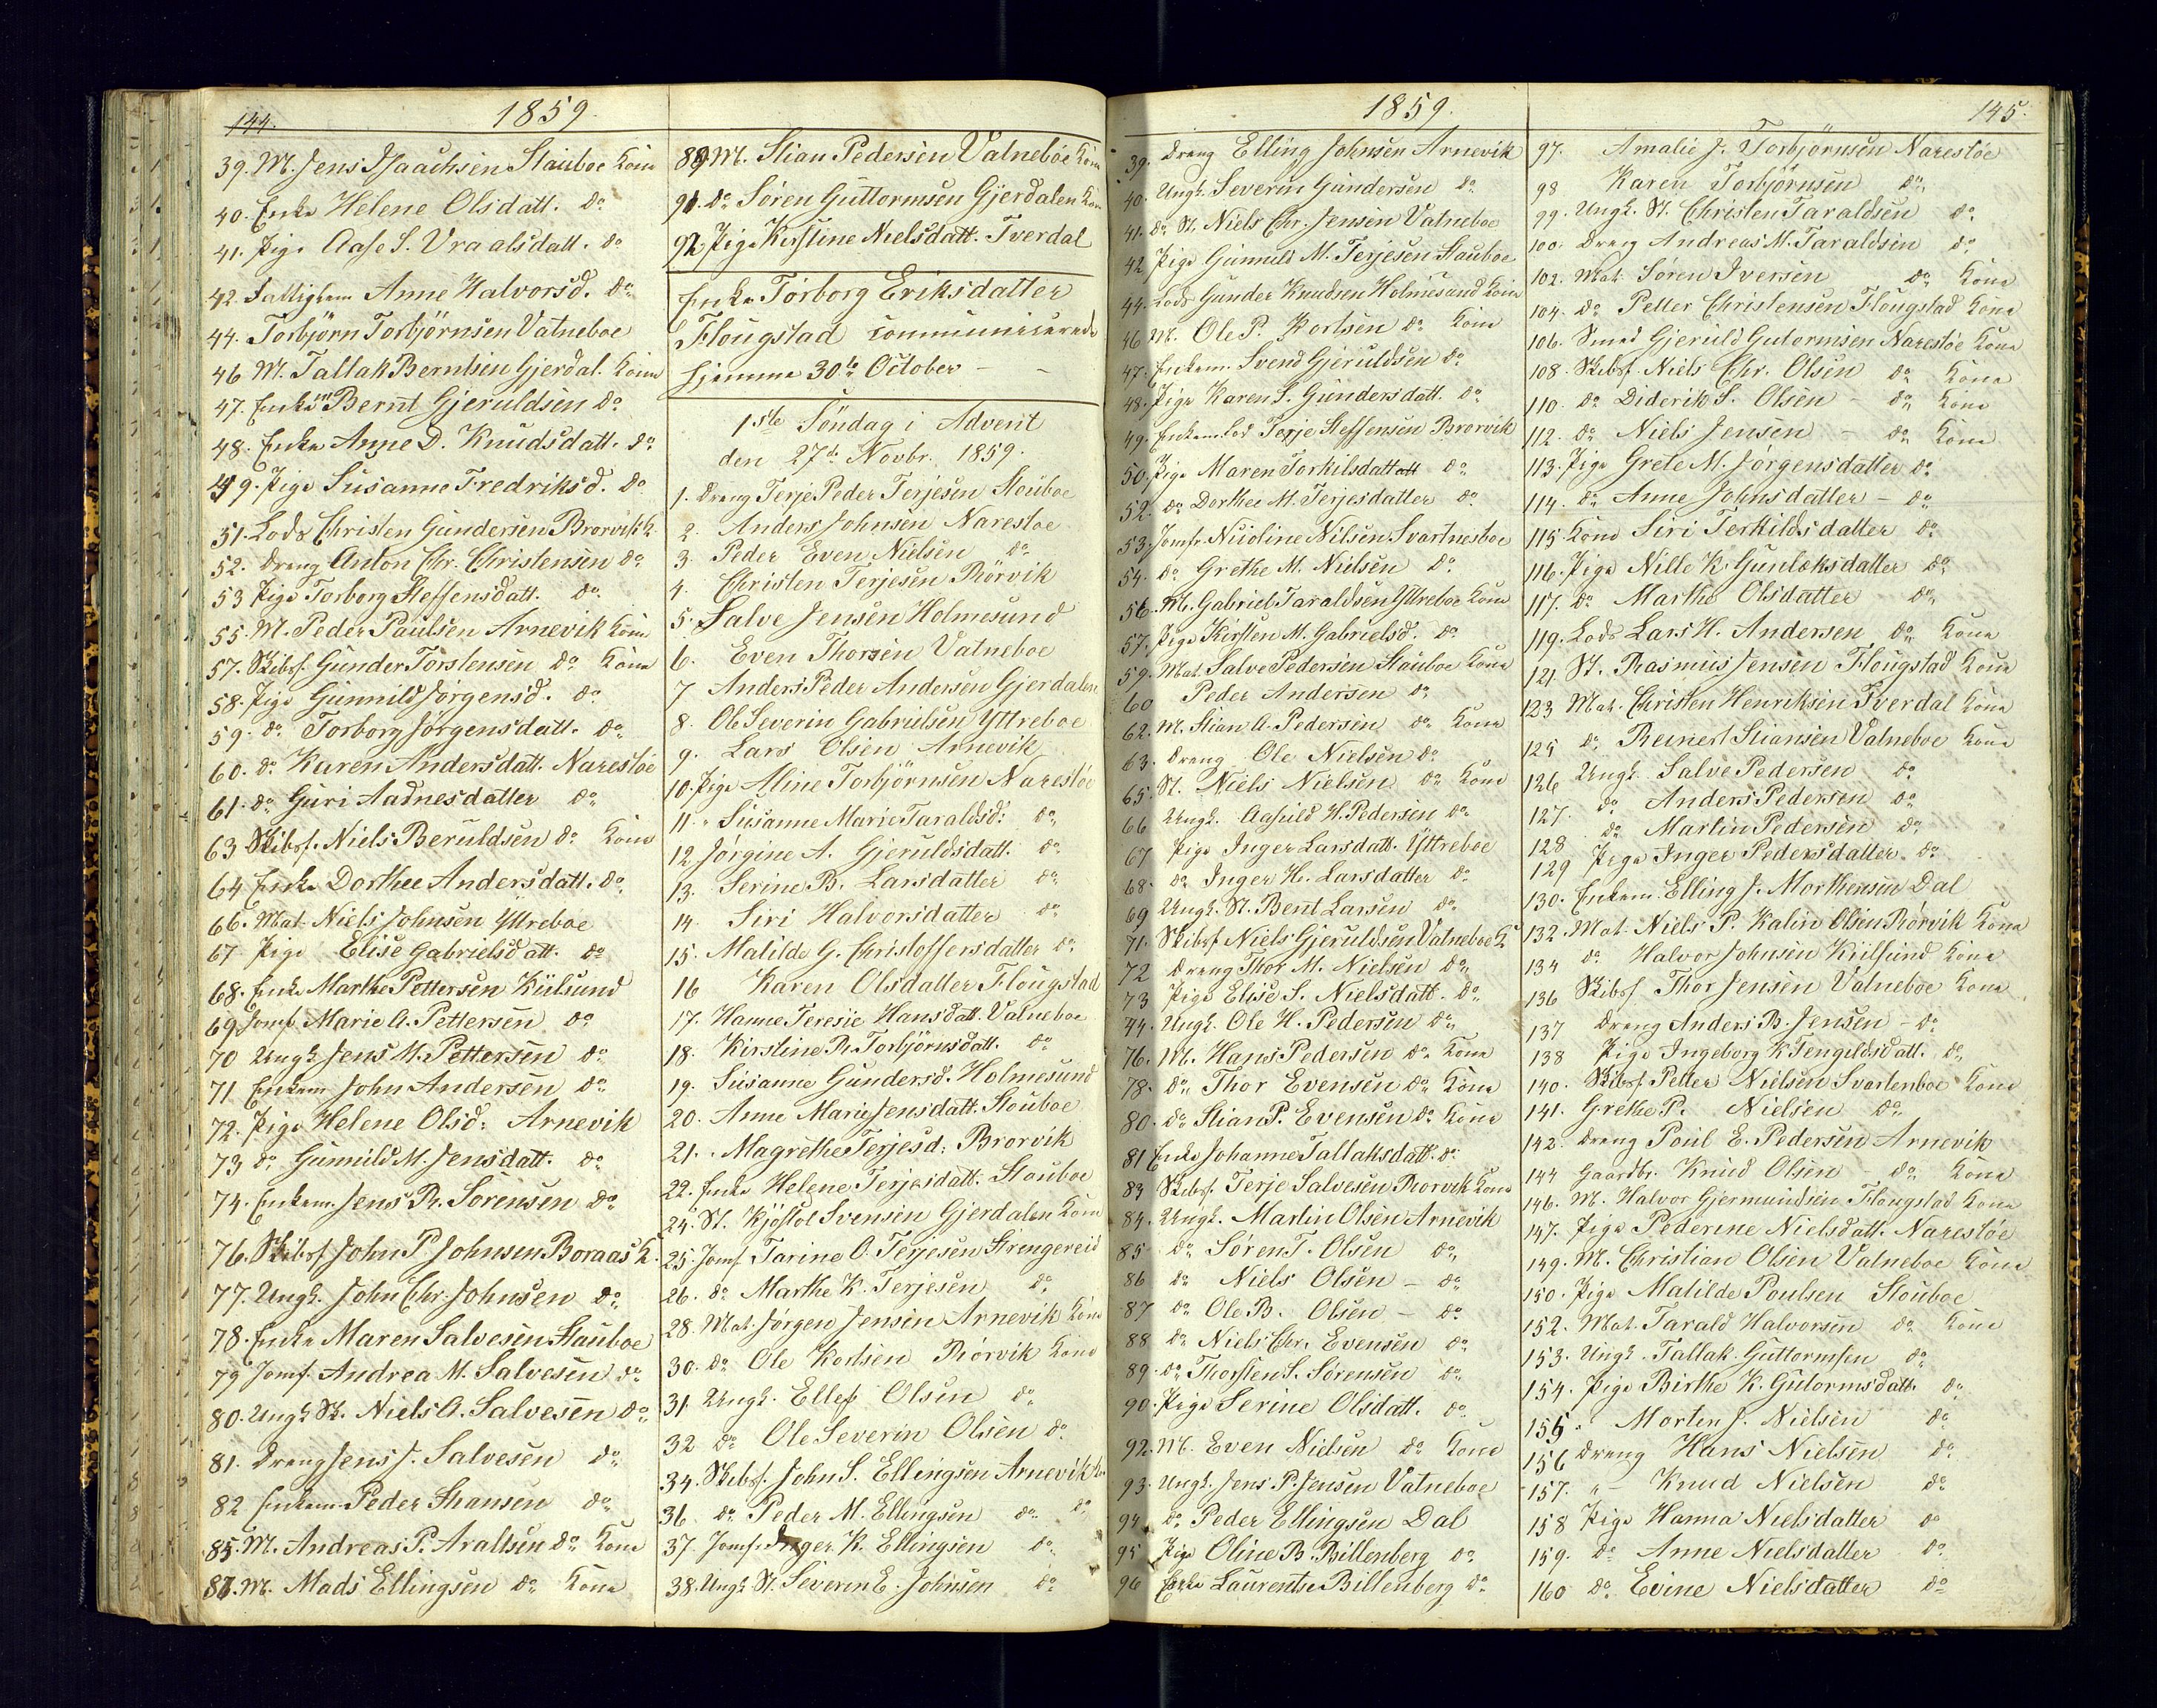 144.
1859.
39. M. Jens Isaachsen Stauboe Kone
40. Enke Helene Olsdatt. do
41. Pige Aase S. Vraalsdatt. do
42. Fattiglem Anne Halvorsd. do
44. Torbjörn Torbjörnsen Vatneboe
46 M. Tallak Berntsen Gjerdal. Kone
47. Enkem Bernt Gjeruldsen do
48. Enke Anne D. Knudsdatt. do
49. Pige Susanne Fredriksd. do
51. Lods Christen Gundersen Brorvik K.
52. Dreng Anton Chr. Christensen do
53 Pige Torborg Steffensdatt. do
55. M. Peder Paulsen Arnevik Kone
57. Skibsf. Gunder Torstensen do Kone
58. Pige Gunnild Jörgensd. do
59. do Torborg Jörgensdatt. do
60. do Karen Andersdatt. Narestöe
61. do Guri Aadnesdatter do
63. Skibsf. Niels Beruldsen do Kone
64 Enke Dorthee Andersdatt. do
66. Mat. Niels Johnsen Yttreboe
67 Pige Elise Gabrielsdatt. do
68. Enke Marthe Pettersen Kiilsund
69 Jomf. Marie A. Pettersen do
70 Ungk. Jens M. Pettersen do
71 Enkem John Andersen do
72. Pige Helene Olsd: Arnevik
73 do Gunnild M. Jensdatt. do
74. Enkem. Jens R. Sorensen do
76. Skibsf. John P Johnsen Boraas K.
77. Ungk. John Chr. Johnsen do
78. Enke Maren Salvesen Stauboe
79 Jomf. Andrea M. Salvesen do
80. Ungk St. Niels A. Salvesen do
81. Dreng Jens J. Salvesen do
82 Enkem. Peder Stiansen do
85. M. Andreas P. Araltsen do Kone
87. M. Mads Ellingsen do Kone
89. M. Stian Pedersen Vatneböe Kone
91. do Søren Guttormsen Gjerdalen Kone
92. Pige Kirstine Nielsdatt. Tverdal
Enke Torborg Eriksdatter
Flougstad communicerede
hjemme 30te October
1ste Söndag i Advent
den 27de Novbr. 1859.
1. Dreng Terje Peder Terjesen Stouboe
2. Anders Johnsen Narestoe
3. Peder Even Nielsen do
4. Christen Terjesen Rörvik
5. Salve Jensen Holmesund
6. Even Thorsen Vatneboe
7 Anders Peder Andersen Gjerdalen
8. Ole Severin Gabrielsen Yttreboe
9. Lars Olsen Arnevik
10. Pige Aline Torbjörnsen Narestöe
11. " Susanne Marie Taraldsd: do
12 Jørgine A. Gjeruldsdatt. do
13. Serine B. Larsdatter do
14. Siri Halvorsdatter do
15. Matilde G. Christoffersdatter do
16 Karen Olsdatter Flougstad
17. Hanne Teresie Hansdatt. Vatneboe
18. Kirstine R. Torbjörnsdatt. do
19. Susanne Gundersd. Holmesund
20. Anne Marie Jensdatt. Stouboe
21. Magrethe Terjesd: Brorvik
22. Enke Helene Terjesdatt. Stouboe
24. St. Kjöstol Svensen Gjerdalen Kone
25. Jomf. Tarine O. Terjesen Strengereid
26. do Marthe K. Terjesen do
28. Mat. Jörgen Jensen Arnevik Kone
30. do Ole Kortsen Rörvik Kone
31. Ungk. Ellef Olsen do
32 do Ole Severin Olsen do
34. Skibsf. John S. Ellingsen Arnevik K.
36. do Peder M. Ellingsen do do
37. Jomf. Inger K. Ellingsen do
38. Ungk St. Severin E. Johnsen do
1859.
145.
39. Dreng Elling Johnsen Arnevik
40. Ungk. Severin Gundersen do
41. do St. Niels Chr. Jensen Vatneboe
42 Pige Gunnild M. Terjesen Stauboe
44. Lods Gunder Knudsen Holmesund Kone
46 M. Ole P. Kortsen do Kone
47. Enkem. Svend Gjeruldsen do
48. Pige Karen S. Gundersdatt. do
49. Enkem. Lod Terje Steffensen Brorvik
50. Pige Maren Torkilsdatt do
52. do Dorthee M. Terjesdatter do
53. Jomfr. Nicoline Nilsen Svartnesboe
54. do Grethe M. Nielsen do
56. M. Gabriel Taraldsen Yttreboe Kone
57. Pige Kirsten M. Gabrielsd. do
59. Mat. Salve Pedersen Stauboe Kone
60 Peder Andersen do
62. M. Stian A. Pedersen do Kone
63. Dreng Ole Nielsen do
65. St. Niels Nielsen do Kone
66 Ungk. Aashild H. Pedersen do
67 Pige Inger Larsdatt. Yttreboe
68. do Inger H. Larsdatter do
69 Ungk. St. Bent Larsen do
71. Skibsf. Niels Gjeruldsen Vatneboe K
72 Dreng Thor M. Nielsen do
73 Pige Elise S. Nielsdatt. do
44. Ungk. Ole H. Pedersen do
76. M. Hans Pedersen do Kone
78. do Thor Evensen do Kone
80. do Stian P. Evensen do Kone
81 Enke Johanne Tallaksdatt. do
83 Skibsf. Terje Salvesen Rorvik Kone
84. Ungk. Martin Olsen Arnevik
85 do Søren T. Olsen do
86 do Niels Olsen – do
87 do Ole B. Olsen – do
88 do Niels Chr. Evensen do
89. do Thorsten S. Sørensen do
90. Pige Serine Olsdatt. do
92. M. Even Nielsen do Kone
93. Ungk. Jens P. Jensen Vatneboe
94. do Peder Ellingsen Dal
95 Pige Oline B. Billenberg do
96 Enke Laurentse Billenberg do
97. Amalie J. Torbjörnsen Narestöe
98 Karen Torbjörnsen do
99. Ungk. St. Christen Taraldsen do
100. Dreng Andreas M. Taraldsen do
102. Mat. Søren Iversen do Kone
104. do Petter Christensen Flougstad Kone
106. Smed Gjeruld Gutormsen Narestöe Kone
108. Skibsf. Niels Chr. Olsen do Kone
110. do Diderik S. Olsen – do Kone
112. do Niels Jensen – do Kone
113. Pige Grete M. Jørgensdatter do
114. do Anne Johnsdatter – do
115 Kone Siri Terkildsdatter do
116. Pige Nille K. Gunlaksdatter do
117. do Marthe Olsdatter do
119. Lods Lars H. Andersen do Kone
121. St. Rasmus Jensen Flougstad Kone
123 Mat. Christen Henriksen Tverdal Kone
125 do Reinert Stiansen Vatneboe Kone
126 Ungk. Salve Pedersen do
127. do Anders Pedersen do
128 do Martin Pedersen do
129 Pige Inger Pedersdatter do
130. Enkem. Elling J. Morthensen Dal
132. Mat. Niels P. Kalin Olsen Rörvik Kone
134 do Halvor Johnsen Kiilsund Kone
136 Skibsf. Thor Jensen Vatneboe Kone
137 Dreng Anders B. Jensen – do
138 Pige Ingeborg K Tengildsdatt. do
140. Skibsf. Petter Nielsen Svartenboe Kone
141. Grethe P. Nielsen do
142. Dreng Poul E. Pedersen Arnevik
144 Gaardbr. Knud Olsen – do Kone
146. M. Halvor Gjermundsen Flougstad Kone
147. Pige Pederine Nielsdatt. Narestöe
149. M. Christian Olsen Vatneboe Kone
150. Pige Matilde Poulsen Stouboe
152. Mat. Tarald Halvorsen do Kone
153. Ungk. Tallak Guttormsen do
154. Pige Birthe K. Gutormsdatt. do
155. Morten J. Nielsen do
156 Dreng Hans Nielsen do
157. " – Knud Nielsen do
158 Pige Hanna Nielsdatter do
159. do Anne Nielsdatter do
160 do Evine Nielsdatter do